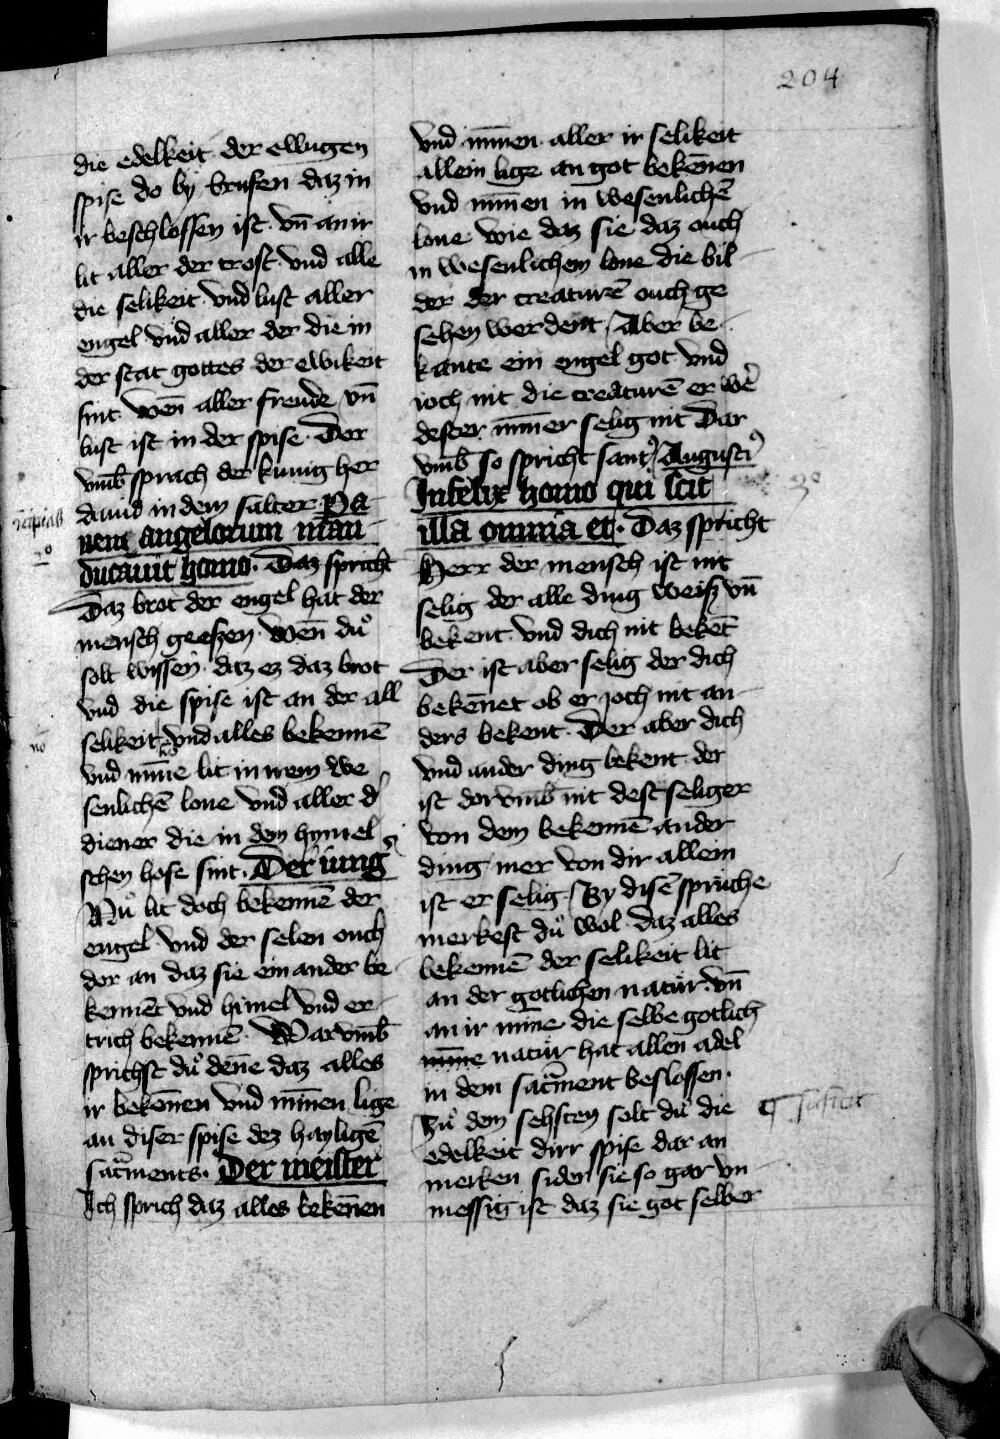 204
die edelkeit der ewigen
spise do by brufen daz in
ir beschlossen ist. vn̄ an ir
lit aller der trost vnd alle
die selikeit vnd lust aller
engel vnd aller der die in
der stat gottes der ewikeit
sint. wen̄ aller freude vn̄
lust ist in der spise. Dor
vmb̄ sprach der kunig her
dauid in dem salter. Pa
nem angelorum man
ducauit homo. Daz spricht
Daz brot der engel hat der
mensch geeszen. wen̄ duͦ
solt wissen. daz ez daz brot
vnd die spise ist an der all
selikeit vnd alles bekennē
vnd mīne lit in irem we
senlichē lone vnd aller d'
diener die in dem hymel
schen hofe sint. Der iung
Nuͦ lit doch bekennē der
engel vnd der selen ouch
dor an daz sie ein ander be
kennēt vnd himel vnd er
trich bekennē. War vmb̄
sprichst duͦ den̄e daz alles
ir beken̄en vnd minnen lige
an diser spise dez hayligē
sacͣments. Der meister
Ich sprich daz alles beken̄en
vnd minnen aller ir selikeit
allein lige an got beken̄en
vnd minnen in wesenlichē
lone wie daz sie daz ouch
in wesenlichem lone die bil
der der creaturē ouch ge
sehen werdent. Aber be
kante ein engel got vnd
ioch nit die creaturē er we᷑
dester minner selig nit Dar
vmb̄ so spricht sant Augusti⁹
Infelix homo qui scit
illa omnia et͛. Daz spricht
Herr der mensch ist nit
selig der alle ding weisz vn̄
bekent vnd dich nit bekēt
Der ist aber selig der dich
beken̄et ob er joch nit an
ders bekent. Der aber dich
vnd ander ding bekent der
ist dor vmb̄ nit dest seliger
von dem bekennē ander
ding mer von dir allein
ist er selig. By disē spruche
merkest duͦ wol daz alles
bekennē der selikeit lit
an der gotlichen natur. vn̄
an ir mīne die selbe gotlich
natur hat allen adel
in dem sacͣment beslossen.
Zuͦ dem sehsten solt duͦ die
edelkeit dirr spise dar an
merken sider sie so gar vn
messig ist daz sie got selber